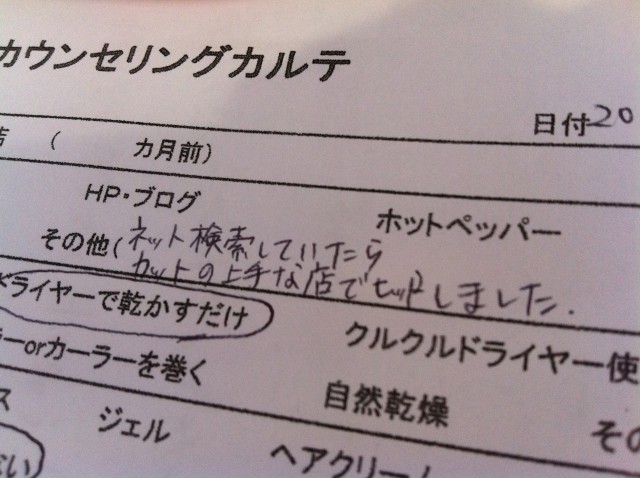 カウンセリングカルテ
日付20
( カ月前)
HP・ブログ ホットペッパー
その他(ネット検索していたら
カットの上手な店でヒットしました.
ドライヤーで乾かすだけ クルクルドライヤー使
ーorカーラーを巻く 自然乾燥 その
ス ジェル ヘアクリーム
い